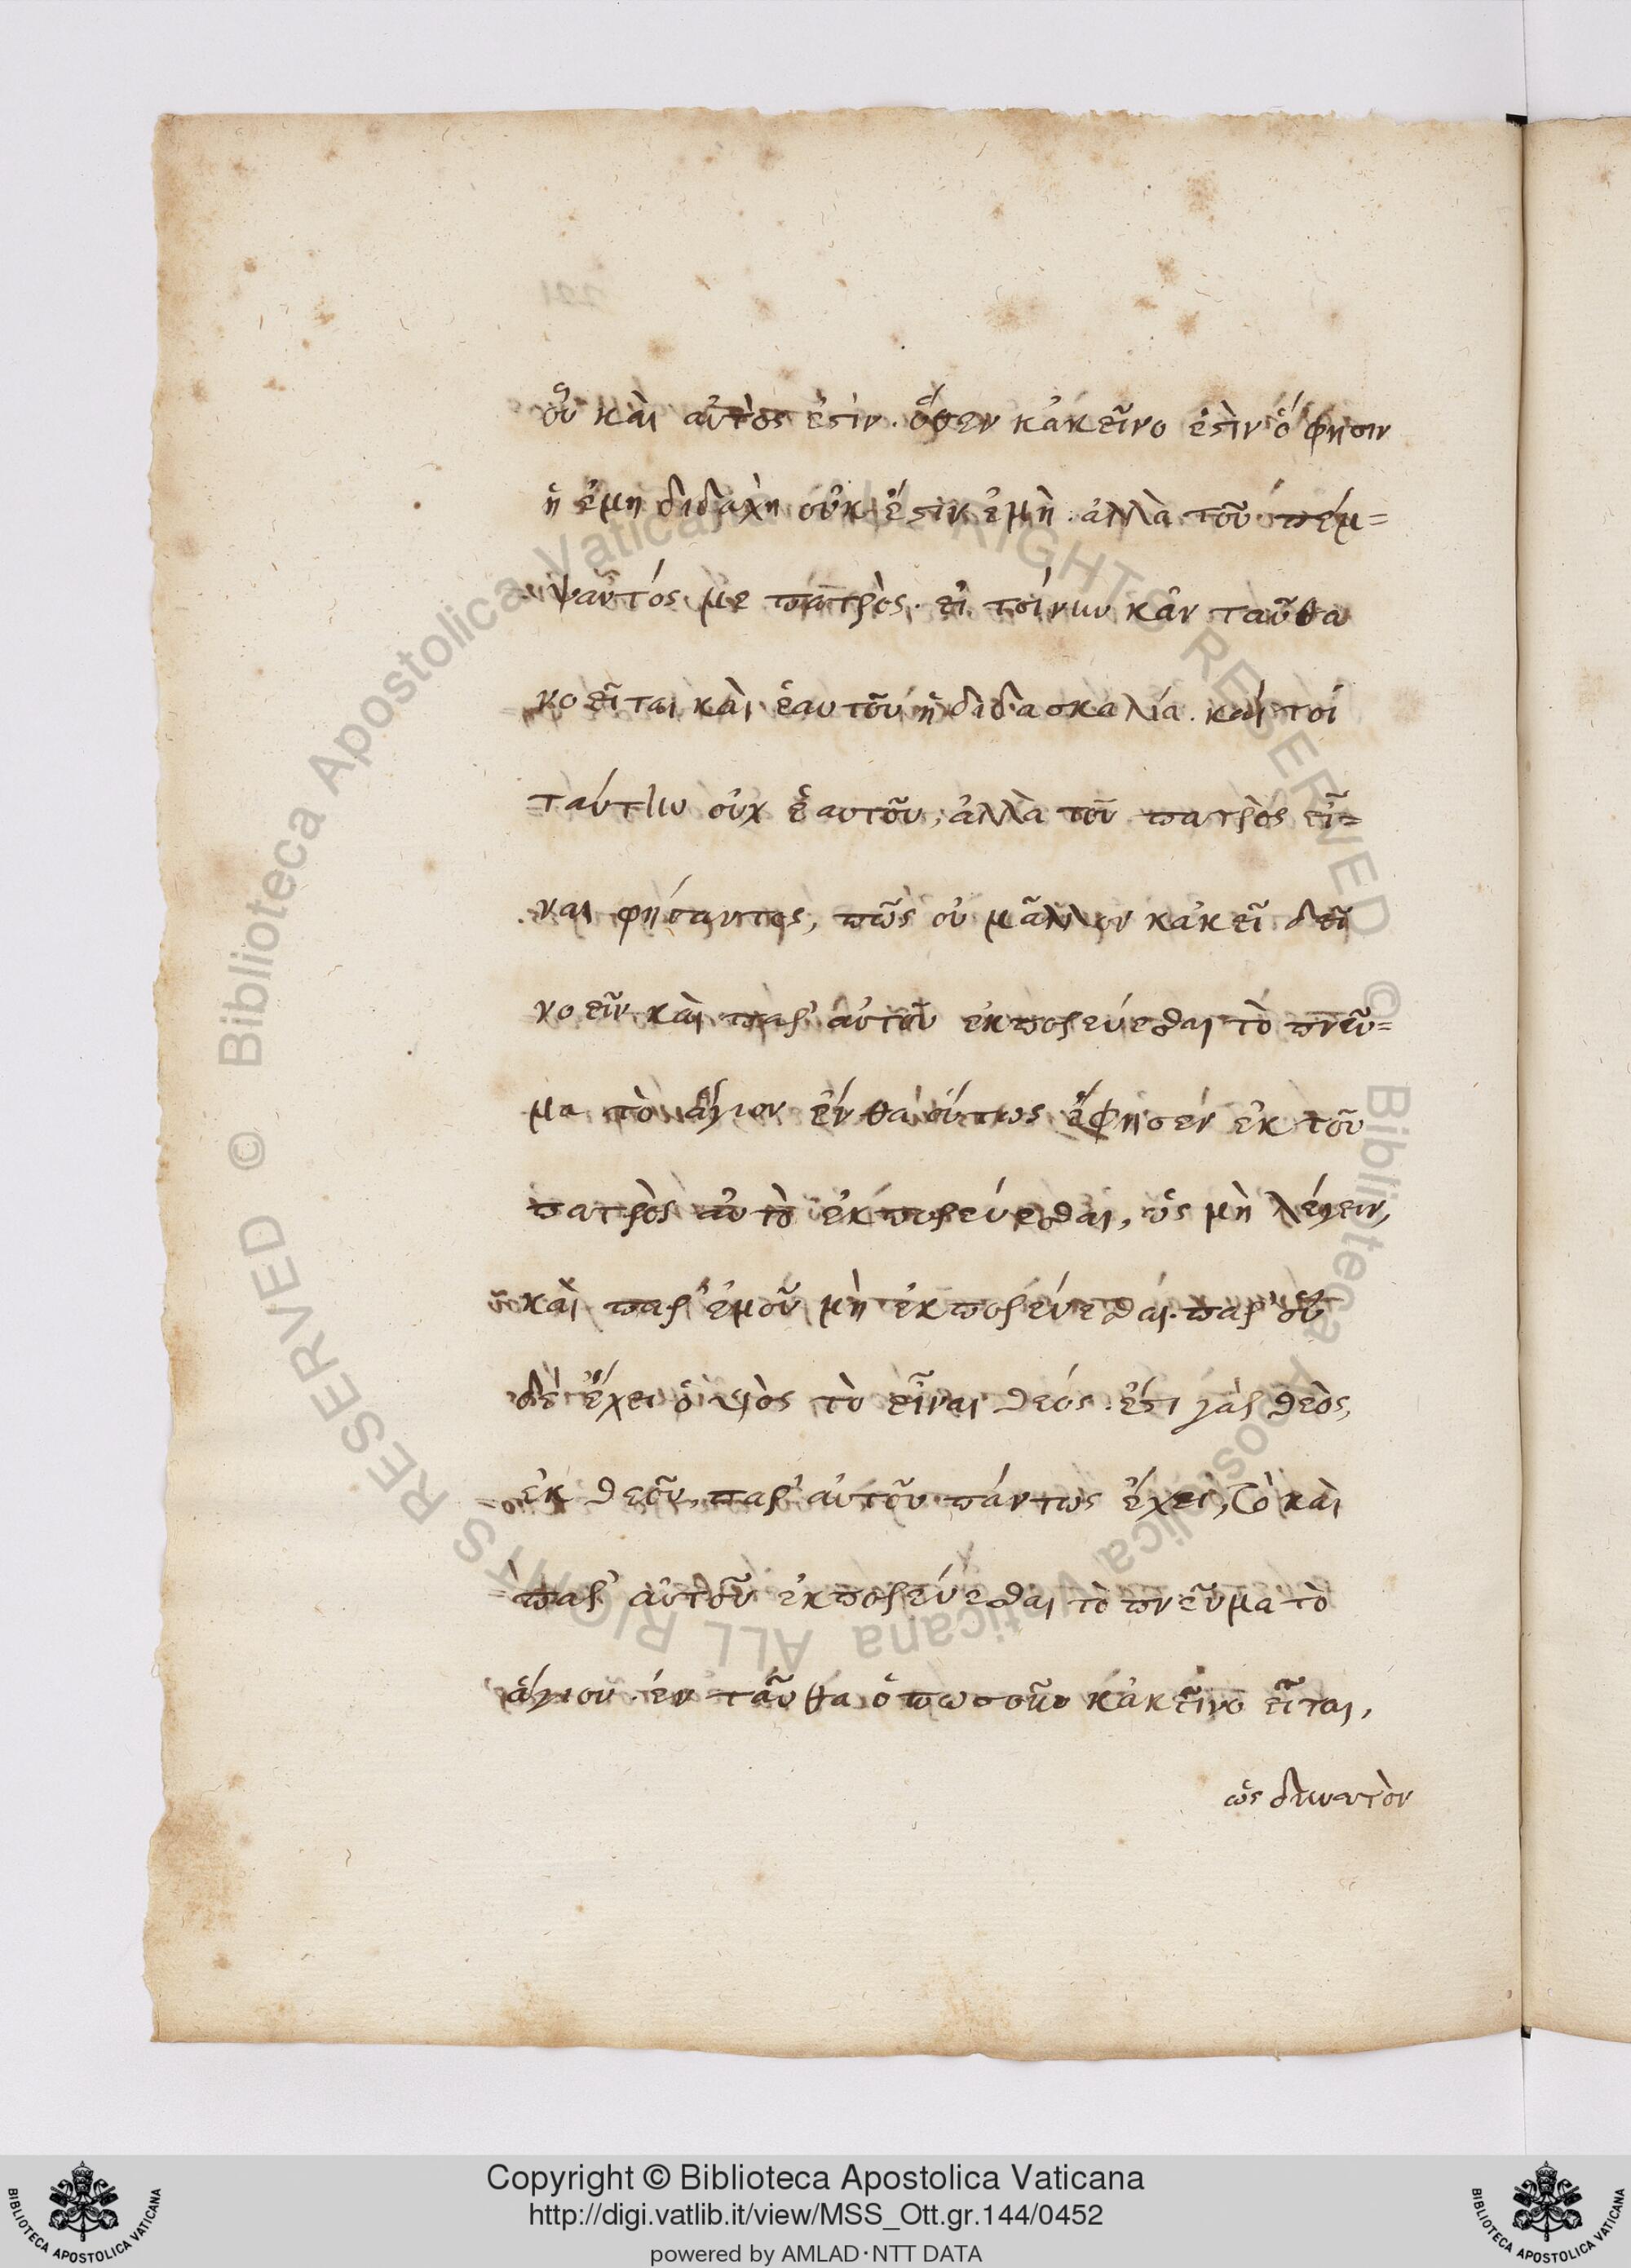 οὗ καὶ αὐτὸς ἐστὶν. ὅθεν κἀκεῖνο ἐστὶν ὅ φησιν
ἡ ἐμὴ διδαχὴ οὐκ ἔστιν ἐμὴ. ἀλλὰ τοῦ πέμ=
ψαντός με πατρὸς. εἰ τοίνυν κἀν ταῦθα
νοεῖται καὶ ἑαυτοῦ ἡ διδασκαλία. καί τοι
ταύτην οὐχ ἑαυτοῦ, ἀλλὰ τοῦ πατρὸς εἶ=
ναι φήσαντος, πῶς οὐ μᾶλλον κἀκεῖ δεῖ
νοεῖν καὶ παρ' αὐτοῦ ἐκπορεύεσθαι τὸ πνεῦ=
μα τὸ ἅγιον ἔνθα οὕτως ἔφησεν ἐκ τοῦ
πατρὸς αὐτὸ ἐκπορεύεσθαι, ὡς μὴ λέγειν,
καὶ παρ' ἐμοῦ μὴ ἐκπορεύεσθαι. παρ' οὗ
δὲ ἔχει ὁ υἱὸς τὸ εἶναι θεός. ἔστι γὰρ θεὸς,
ἐκ θεοῦ, παρ' αὐτοῦ πάντως ἔχει, τὸ καὶ
παρ' αὐτοῦ ἐκπορεύεσθαι τὸ πνεῦμα τὸ
ἅγιον. ἐν ταῦθα ὁπωσοῦν κἀκεῖνο εἶται,
ὡς δυνατὸν
Copyright © Biblioteca Apostolica Vaticana
http://digi.vatlib.it/view/MSS_Ott.gr.144/0452
powered by AMLAD·NTT DATA
BIBLIOTECA APOSTOLICA VATICANA
BIBLIOTECA APOSTOLICA VATICANA
© Biblioteca Apostolica Vaticana ALL RIGHTS RESERVED
© Biblioteca Apostolica Vaticana ALL RIGHTS RESERVED